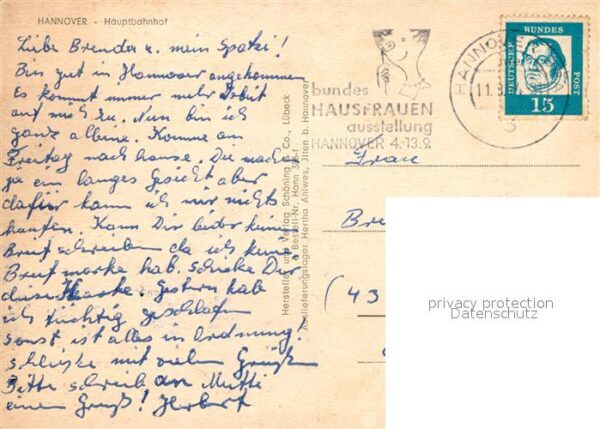 HANNOVER - Hauptbahnhof
Liebe Brenda u. mein Spatzi!
Bin gut in Hannover angekommen
Es kommt immer mehr Arbeit
auf mich zu. Nun bin ich
ganz alleine. Komme am
Freitag nach hause. Du machst
ja ein langes Gesicht aber
dafür kann ich mir nichts
kaufen. Kann Dir leider keinen
Brief schreiben da ich keine
Briefmarke hab. schicke Dir
diese Karte. Gestern hab
ich tüchtig geschlafen
sonst ist alles in Ordnung.
schließe mit vielen Grüßen
Bitte schreib an Mutti
einen Gruß! Herbert
Hersteller und Verlag Schöning & Co., Lübeck
Bestell-Nr. Hann
Auslieferungslager Hertha Ahlwes, Ilten b. Hannover
bundes
HAUSFRAUEN
ausstellung
HANNOVER 4.-13.9.
HANNOVER
11.
3
DEUTSCHE BUNDES POST
15
Frau
Bre
(43
privacy protection
Datenschutz